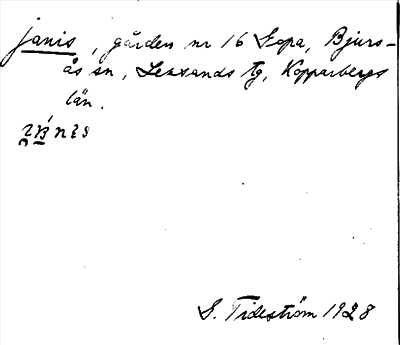 janis, gården nr 16 Gopa, Bjurs-
ås sn, Leksands tg, Kopparbergs
län.
S. Tideström 1928